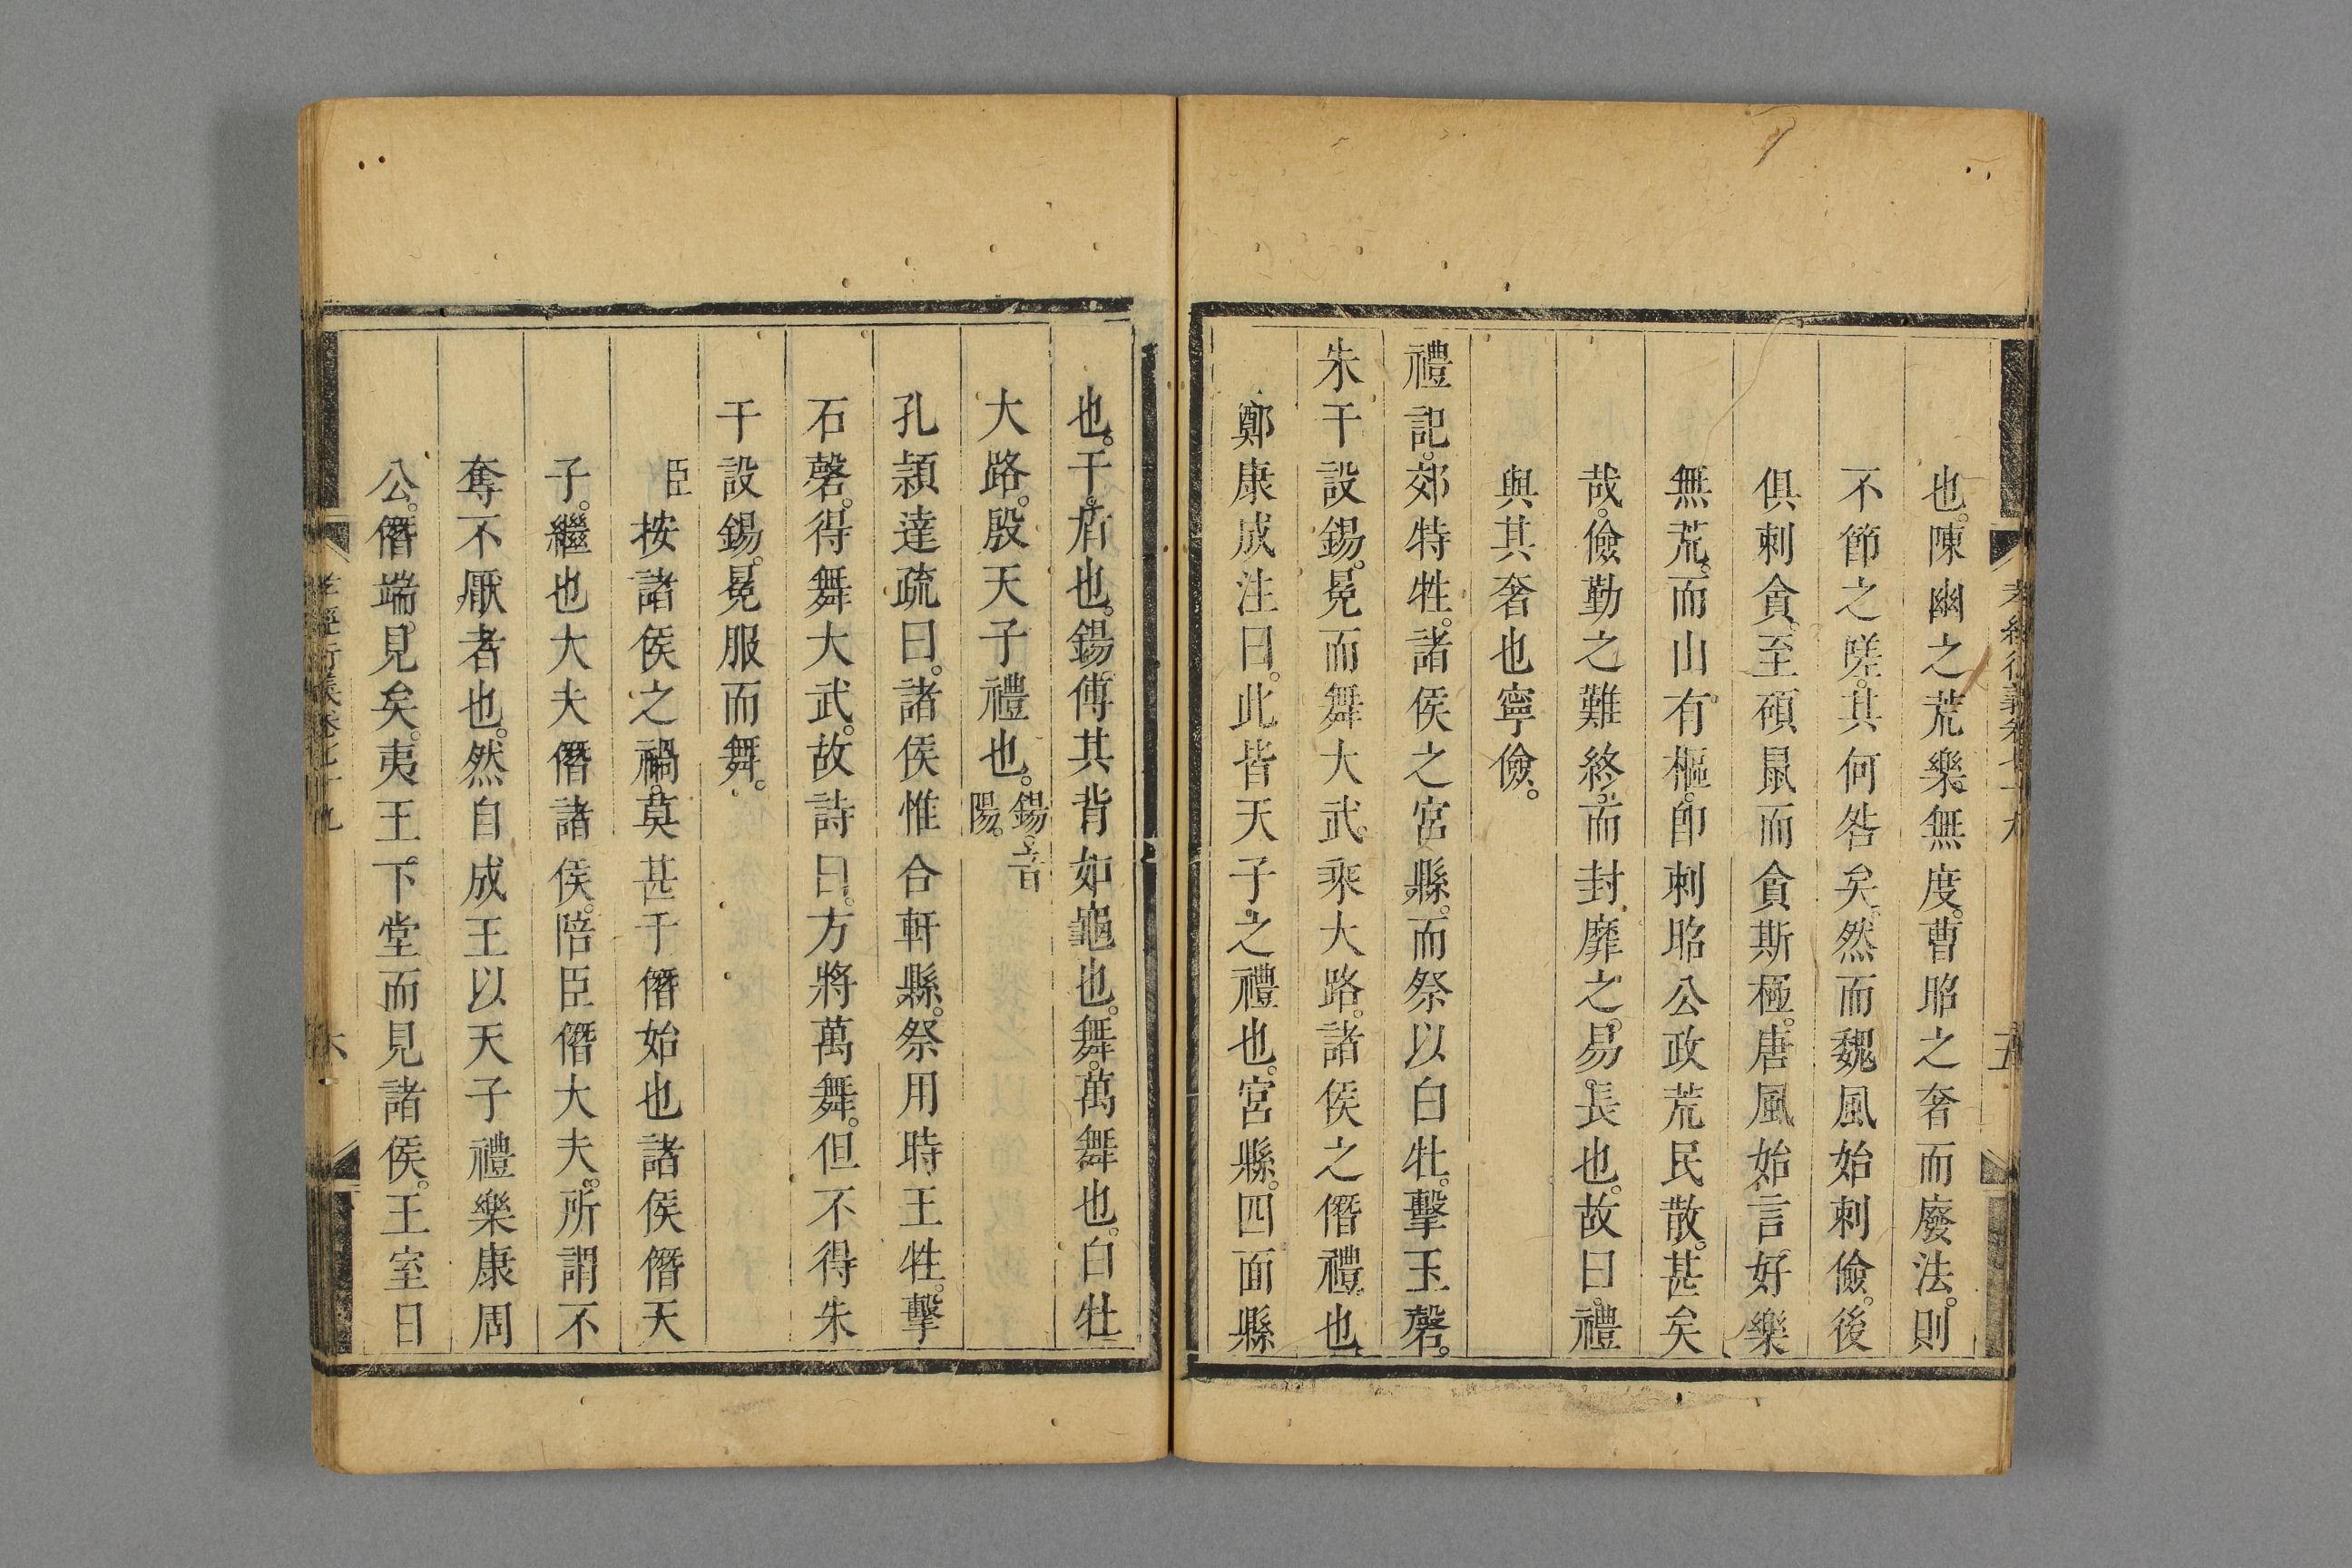 孝經衍義卷七十九 五
也。陳幽之荒樂無度。曹昭之奢而廢法。則
不節之嗟。其何咎矣。然而魏風始刺儉。後
俱刺貪。至碩鼠而貪斯極。唐風始言好樂
無荒。而山有樞。卽刺昭公政荒民散。甚矣
哉。儉勤之難終。而封靡之。易長也。故曰。禮
與其奢也寧儉。
禮記。郊特牲。諸侯之宮縣。而祭以白牡。擊玉磬。
朱干設鍚。冕而舞大武。乘大路。諸侯之僭禮也
鄭康成注曰。此皆天子之禮也。宮縣。四面縣
也。干。盾也。鍚。傅其背如龜也。舞。萬舞也。白牡
大路。殷天子禮也。鍚。音陽。
孔潁達疏曰。諸侯惟合軒縣。祭用時王牲。擊
石磬。得舞大武。故詩曰。方將萬舞。但不得朱
干設鍚。冕服而舞。
臣按諸侯之禍。莫甚于僭始也諸侯僭天
子。繼也大夫僭諸侯。陪臣僭大夫。所謂不
奪不厭者也。然自成王以天子禮樂康周
公。僭端。見矣。夷王。下堂而見諸侯。王室日
孝經衍義卷七十九 六